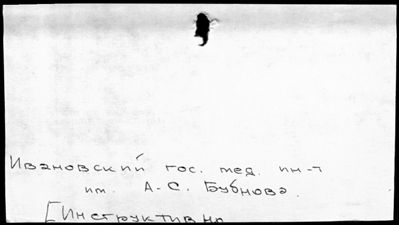 Ивановский гос. мед. ин-т
им. А.С. Бубнова.
[Инструктивно